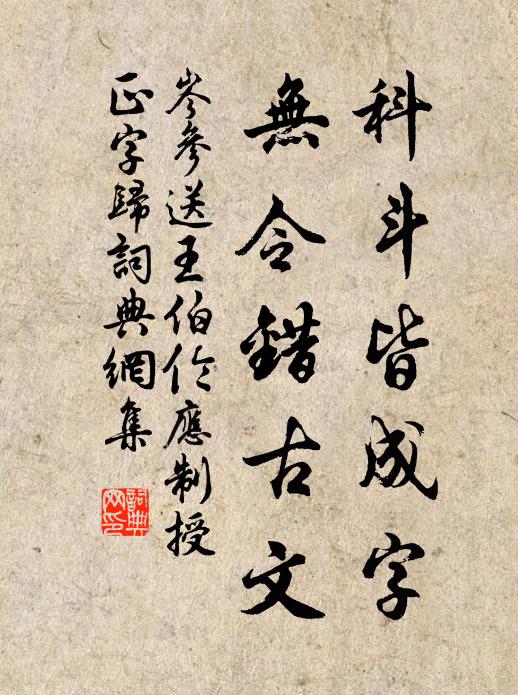 科斗皆成字
無令錯古文
岑參送王伯伦應制授
正字歸詞典網集
詞典网印